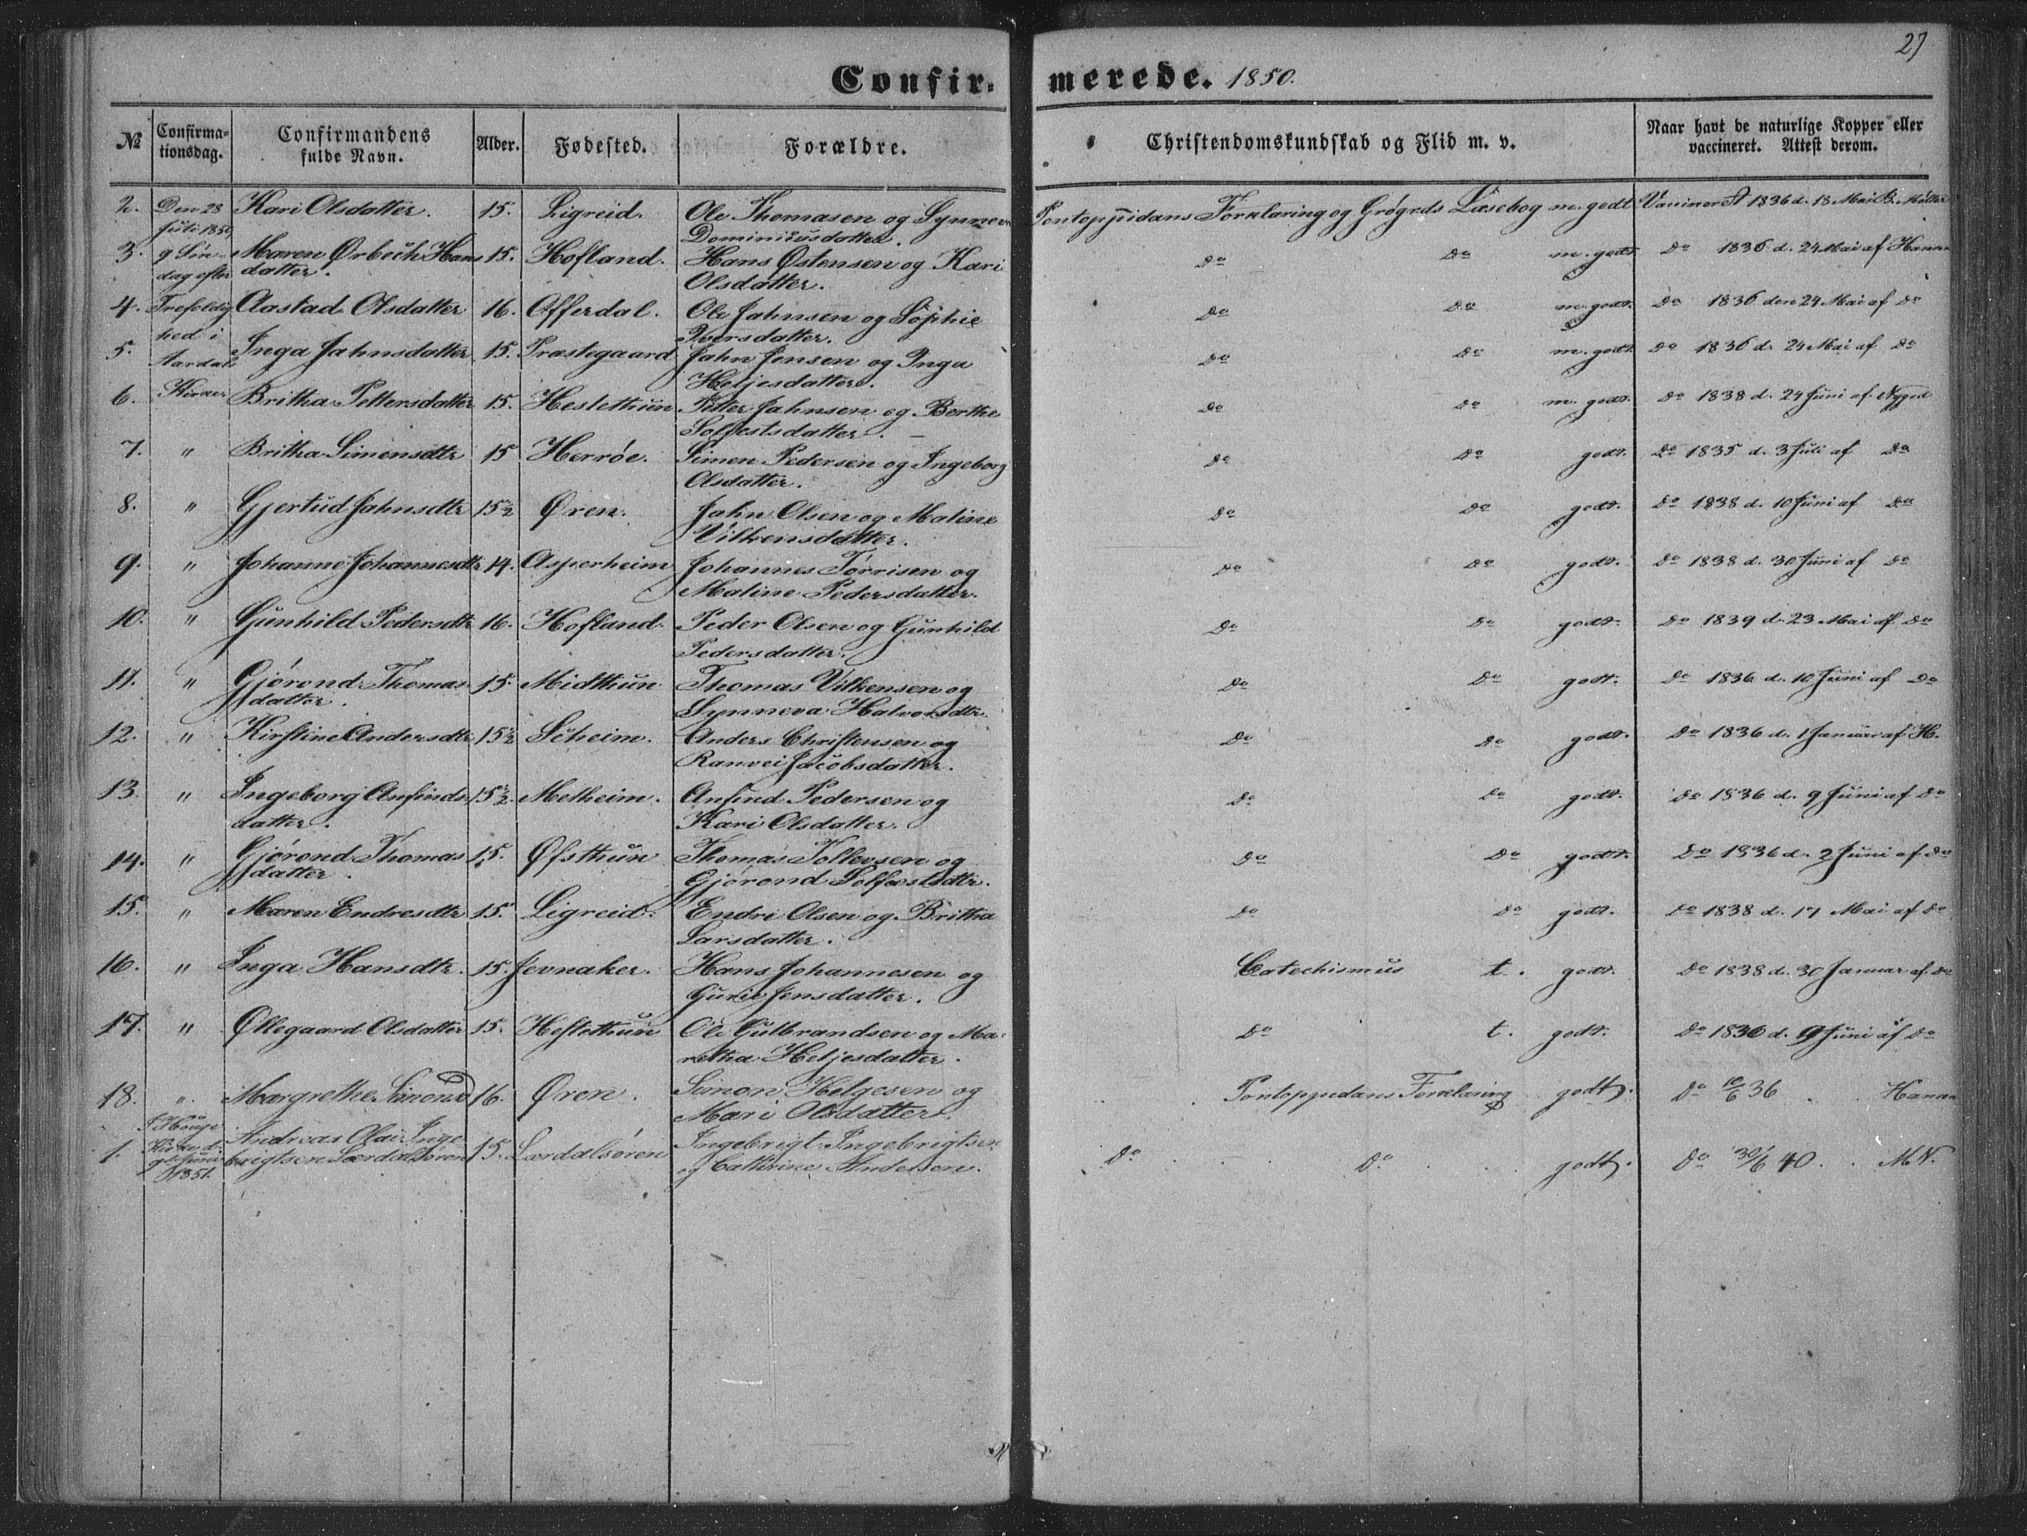 27
Confirmerede. 1850.
№ Confirmationsdag. Confirmandens fulde Navn. Alder. Fødested. Forældre. Christendomskundskab og Flid m. v. Naar havt de naturlige Kopper eller vaccineret. Attest derom.
2. Den 28 Kari Olsdatter. 15. Ligreid. Ole Thomasen og Synneva Pontoppidans Forklaring og Grøgrds Læsebog m. godt Vaccineret 1836 d. 13 Mai B. Møller
Juli 1850 Dominicusdatter.
3. 9 Søn- Maren Ørbech Hans 15. Hofland. Hans Østensen og Kari do do m. godt do 1836 d. 24 Mai af Hanan
dag efter datter. Olsdatter.
4. Trefoldig Aastad Olsdatter 16. Offerdal. Ole Jahnsen og Sophie do do m. godt. do 1836 den 24 Mai af do
hed i Iversdatter.
5. Aardals Inga Jahnsdatter 15. Præstegaard Jahn Jensen og Inga do do m. godt do 1836 d. 24 Mai af do
Heljesdatter.
6. Kirke Britha Pettersdatter 15. Hestethun Petter Jahnsen og Berthe do do m. godt. do 1838 d. 24 Juni af Nygd
Solfestsdatter.
7. " Britha Simensdtr 15 Herrøe. Simen Pedersen og Ingeborg do do godt. do 1835 d. 3 Juli af do
Olsdatter.
8. " Gjertud Jahnsdtr 15½ Øren. Jahn Olsen og Maline do do godt. do 1838 d. 10 Juni af do
Vilkensdatter.
9. " Johanne Johannesdtr 14. Asperheim Johannes Tørrisen og do do godt. do 1838 d. 30 Juni af do
Maline Pedersdatter.
10. " Gunhild Pedersdtr 16. Hofland. Peder Olsen og Gunhild do do godt. do 1839 d. 23 Mai af do
Pedersdatter.
11. " Gjørond Thomas 15. Midthun Thomas Vilkensen og do do godt. do 1836 d. 10 Juni af do
datter. Synneva Halvorsdtr.
12. " Kirstine Andersdtr 15½ Seheim. Anders Christensen og do do godt. do 1836 d. 1 Januar af H.
Ranvei Jacobsdatter.
13. " Ingeborg Anfinds 15½. Melheim. Anfind Pedersen og do do godt. do 1836 d. 9 Juni af do
datter. Kari Olsdatter.
14. " Gjørond Thomas 15. Øfsthun Thomas Tollevsen og do do godt. do 1836 d. 2 Juni af do
datter. Gjørond Solfestsdtr.
15. " Maren Endresdtr 15. Ligreid. Endre Olsen og Britha do do godt. do 1838 d. 17 Mai af do
Larsdatter.
16. " Inga Hansdtr. 15. Jevnaker. Hans Johannesen og Catechismus t. godt. do 1838 d. 30 Januar af do
Gurie Jensdatter.
17. " Øllegaard Olsdatter 15. Hestethun Ole Gulbrandsen og Ma- do t. godt. do 1836 d. 9 Juni af do
retha Heljesdatter.
18. " Margrethe Simonsd 16. Øren. Simon Helgesen og Pontoppidans Forklaring godt. do 10/6 36 Hanan
Mari Olsdatter.
1. Andreas Olai Inge 15. Lærdalsøren Ingebrigt Ingebrigtsen do do godt. do 30/6 40 M.N.
1851. brigtsen Lærdalsøren og Cathrine Andersen.